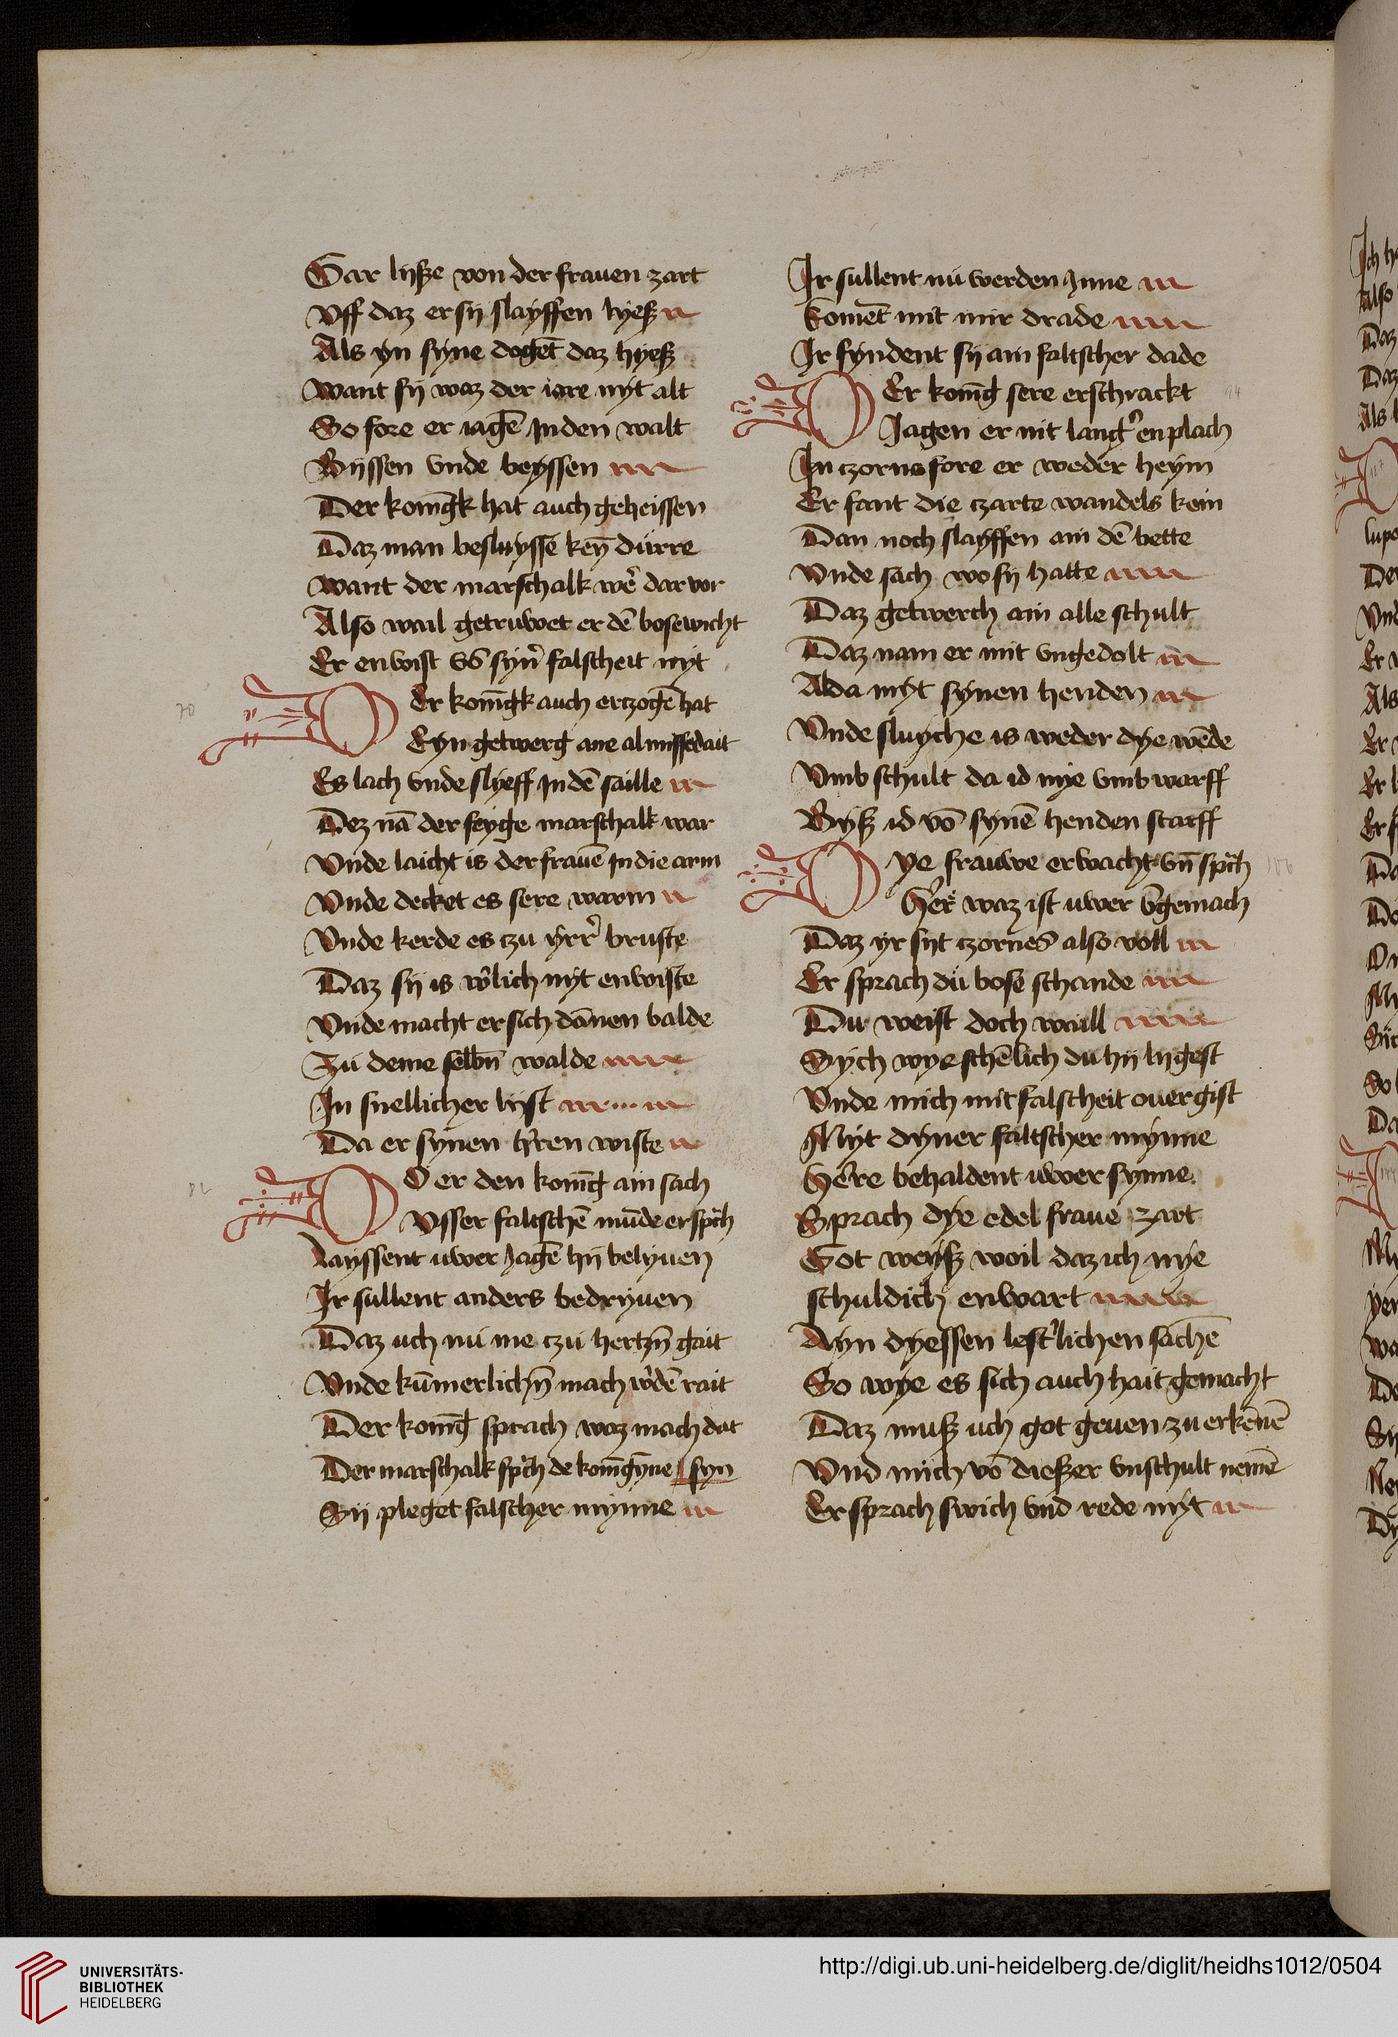 Gar lijsze von der frauen zart
Vff daz er sij slayffen lyesz
Als yn syne doget daz hyesz
Want sij waz der iare nyt alt
So fore er iagē In den walt
Bijssen vnde beyssen
Der konīgk hat auch geheissen
Daz man besluysse keȳ durre
Want der marschalk wer̄ dar vor
Also wail getruwet er dē bosewicht
Er enwist vō syn̄ falscheit nyt
70
Der konīgk auch ertzogē hat
Eyn getwerg ane al missedait
Es lach vnde slyeff In dē saille
Dez nā der feyge marschalk war
Vnde laicht is der frauē In die arm
Vnde decket es sere warm
Vnde kerde es czu yrr̄ bruste
Daz sij is w̄lich nyt enwiste
Vnde macht er sich dānen balde
Zu deme selbn̄ walde
In snellicher lijst
Da er synen h̄ren wiste
82
DO er den konīg ain sach
Vsser faltschē mūde er sprch
Layssent uwer Jagē hij belyuen
Ir sullent anders bedryuen
Daz uch nu me czu hertzn̄ gait
Vnde kūmerlichn̄ mach w̄dē rait
Der konīg sprach waz mach dat
Der marschalk sprch de konīgȳne syn
Sij pleget falscher mynne
Ir sullent nu werden Inne
Komēt mit mir drade
Ir fyndent sij ain faltscher dade
94
DEr konīg sere erschrackt
Jagen er nit lanḡ enplach
In czorne fore er weder heym
Er fant die czarte wandels kein
Dan noch slayffen ain dē bette
Vnde sach wo sij hatte
Daz getwerch ain alle schult
Daz nam er mit vngedolt
Alda myt synen henden
Vnde sluyche is weder dye wēde
Vmb schult da id nye vmb warff
Bysz id vō synē henden starff
106
DYe frauwe erwacht vn̄ sprch
Her̄ waz ist uwer vngemach
Daz yr sijt czornes also voll
Er sprach du bose schande
Du weist doch waill
Sych wye schēlich du hij ligest
Vnde mich mit falscheit ouergist
Myt dyner faltscher mynne
Here behaldent uwer synne
Sprach dye edel fraue zart
Got weysz woil daz ich nye
schuldich enwart
Ayn dyessen lest̄lichen sachē
So wye es sich auch hait gemacht
Daz musz uch got geuen zu erkēnē
Vnd mich vō dieszer vnschult nemē
Er sprach swich vnd rede nyt
UNIVERSITÄTS-
BIBLIOTHEK
HEIDELBERG
http://digi.ub.uni-heidelberg.de/diglit/heidhs1012/0504